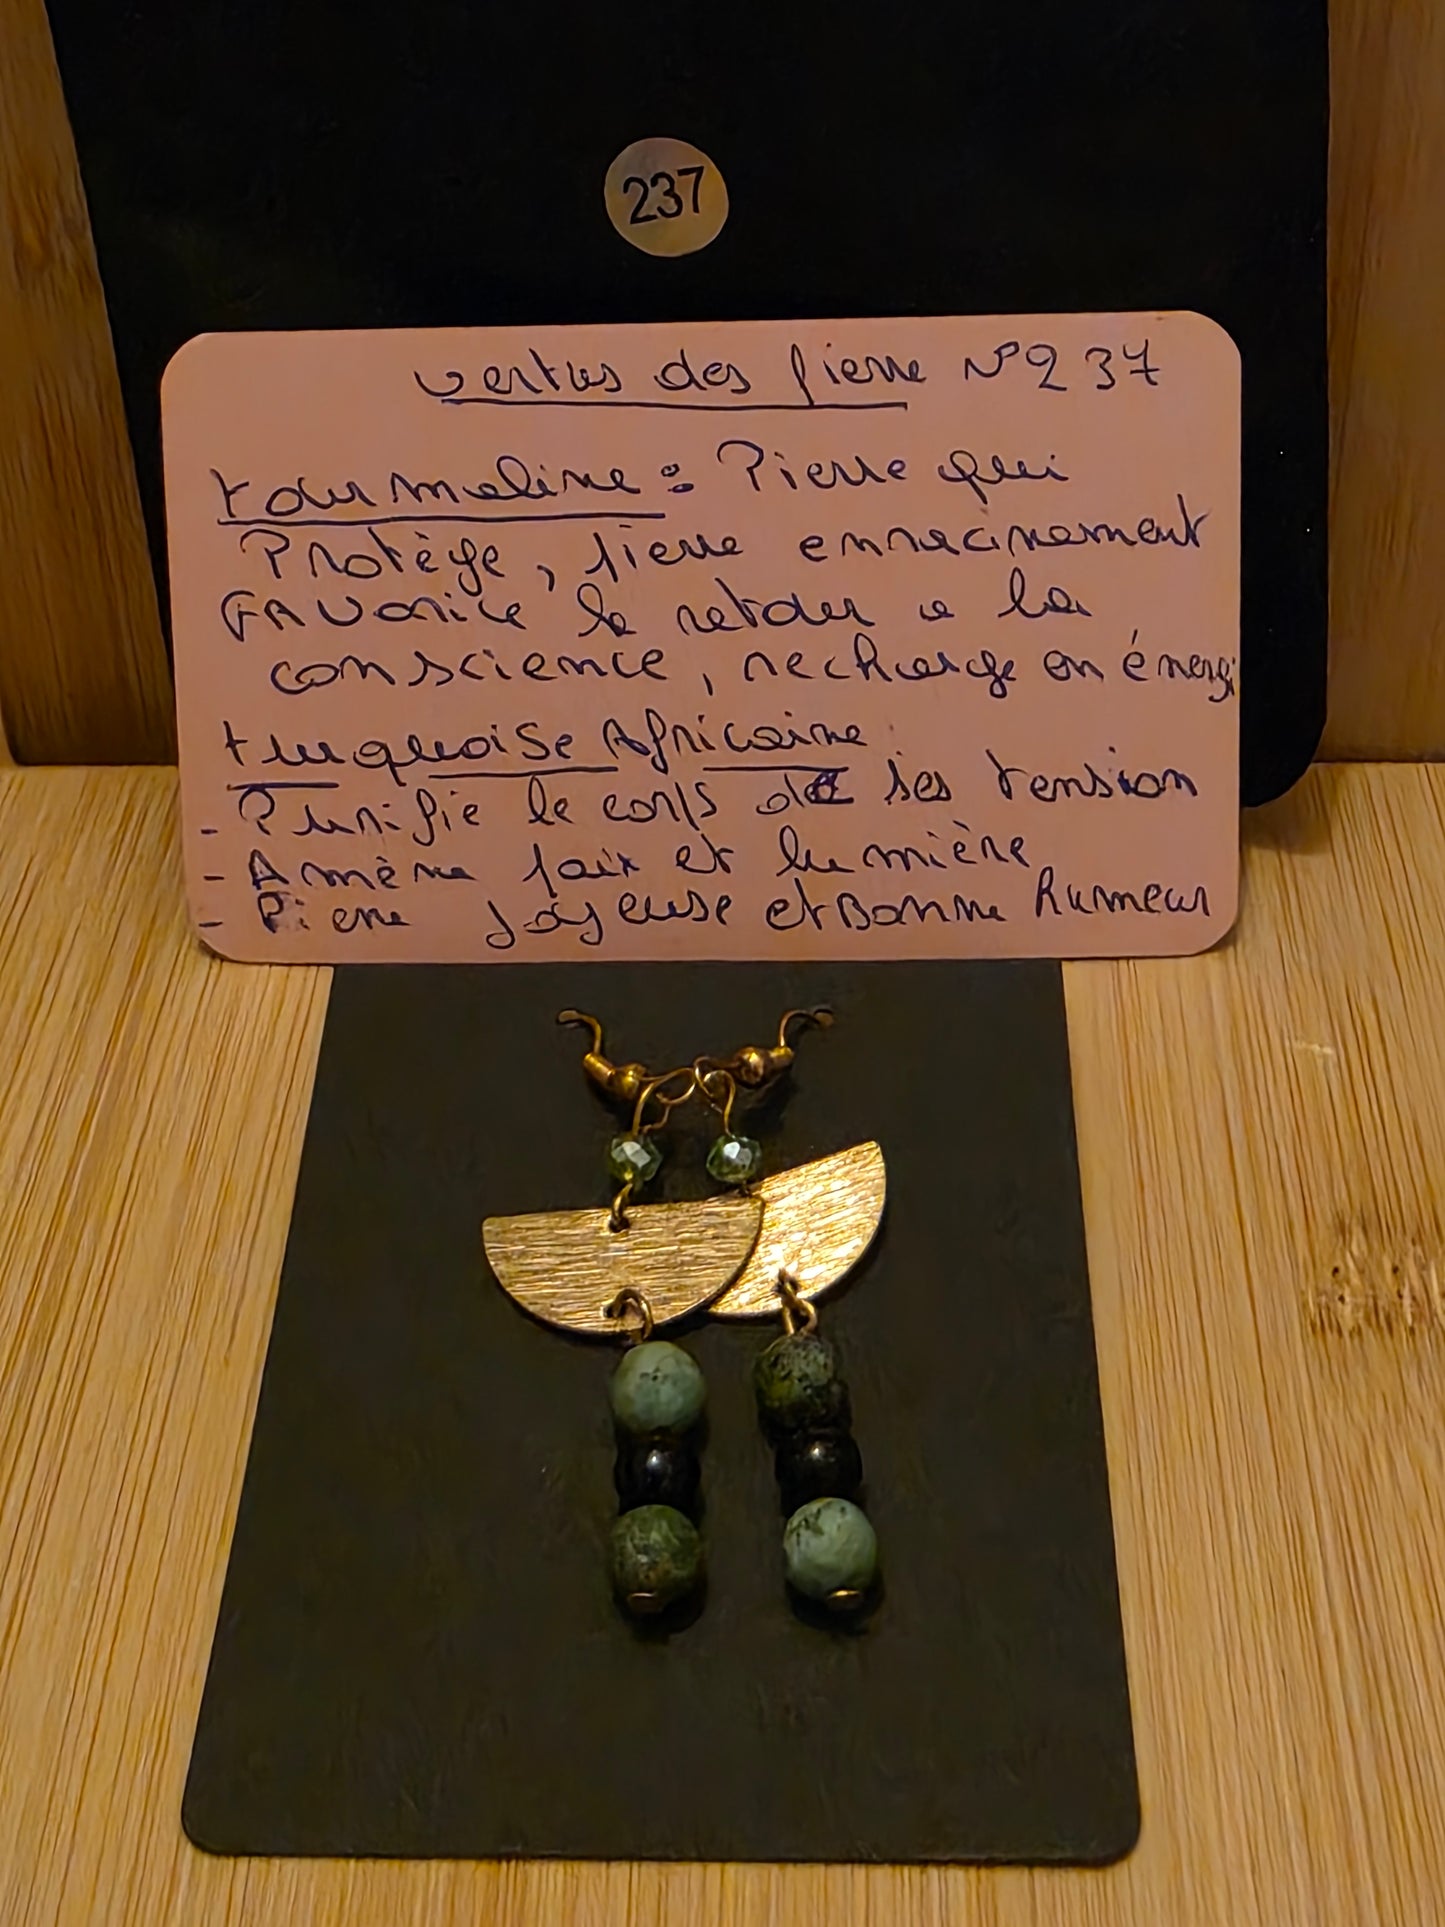 237
vertus des pierre N°237
tourmaline : Pierre qui
Protège, pierre enracinement
FAVorice le retour a la
conscience, recharge en énergi
turquoise Africaine
- Purifie le corps de ses tension
- Amène paix et lumière
- Pierre joyeuse et Bonne humeur